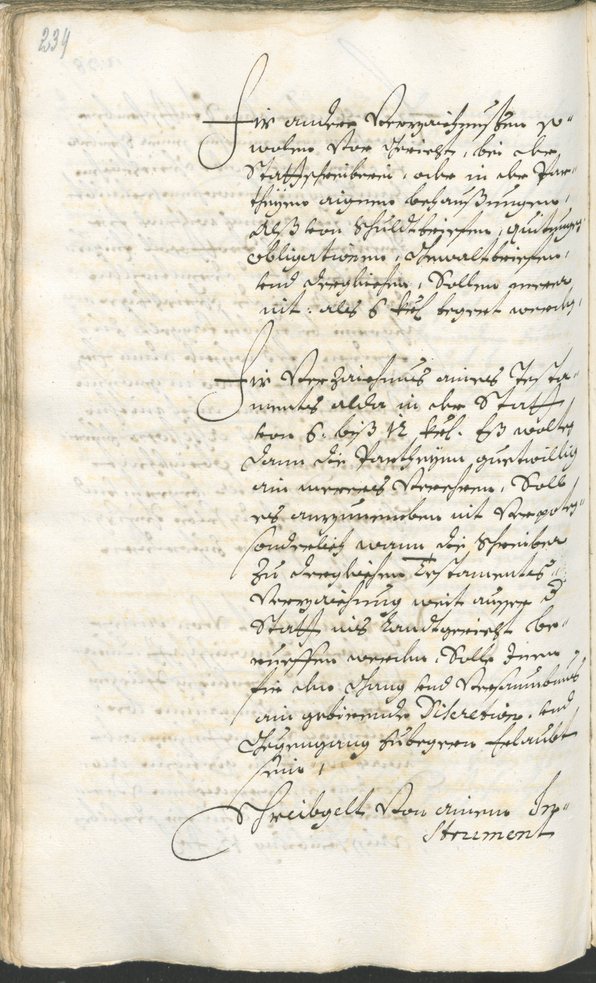 234
Fir andere Verzaichnussen so=
wolen vor Gericht, bei der
Stattschreiberei, oder in der Par=
theyen aignen behaußungen,
Alß von Schuldbriefen, quitungen
obligationen, Gewaltbriefen,
und dergleichen, Sollen merers
nit: als 6 kr. begert werden,
Fir Verzaichnus aines Testa=
ments alda in der Statt
von 6. biß 12 kr. Eß wolten
dann die Partheyen guetwillig
ain merers Verehren, Solle
es anzunemben nit Verpoten
sonderlich wann die Schreiber
zu dergleichen Testaments
Verzaichnung weit ausser d
Statt ins Landtgericht be=
rueffen werden, Solle Inen
für den Gang und Versaumbnus
ain gebirende Discretion, und
Gegengang zubegeren Erlaubt
sein,
Schreibgelt von ainem In=
strument